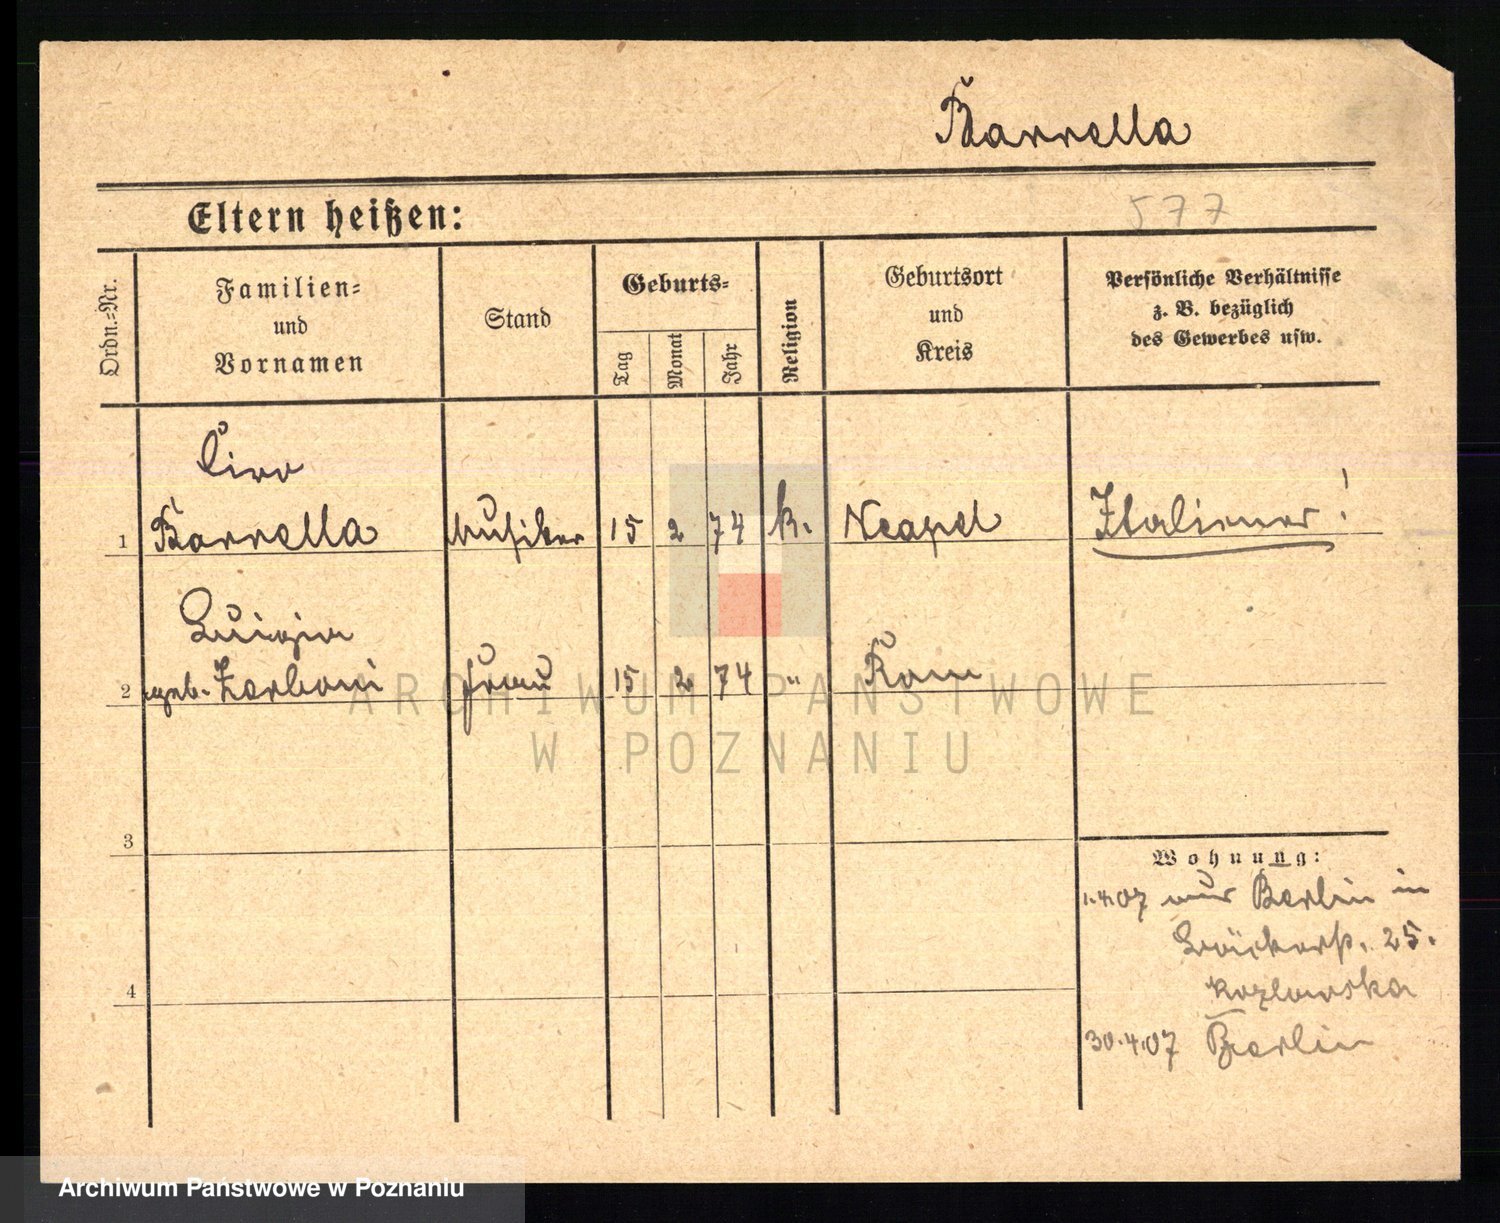 Barrella
577
Eltern heißen:
Ordn.-Nr.
Familien-
und
Vornamen
Stand
Geburts-
Tag
Monat
Jahr
Religion
Geburtsort
und
Kreis
Persönliche Verhältnisse
z. B. bezüglich
des Gewerbes usw.
Ciro
1 Barrella Musiker 15 2 74 k. Neapel Italiener!
Luigia
2 geb. Zerboni Frau 15 2 74 " Rom
3
4
Wohnung:
1.4.07 aus Berlin in
Bäckerst. 25.
Kozlowska
30.4.07 Berlin
ARCHIWUM PAŃSTWOWE
W POZNANIU
Archiwum Państwowe w Poznaniu